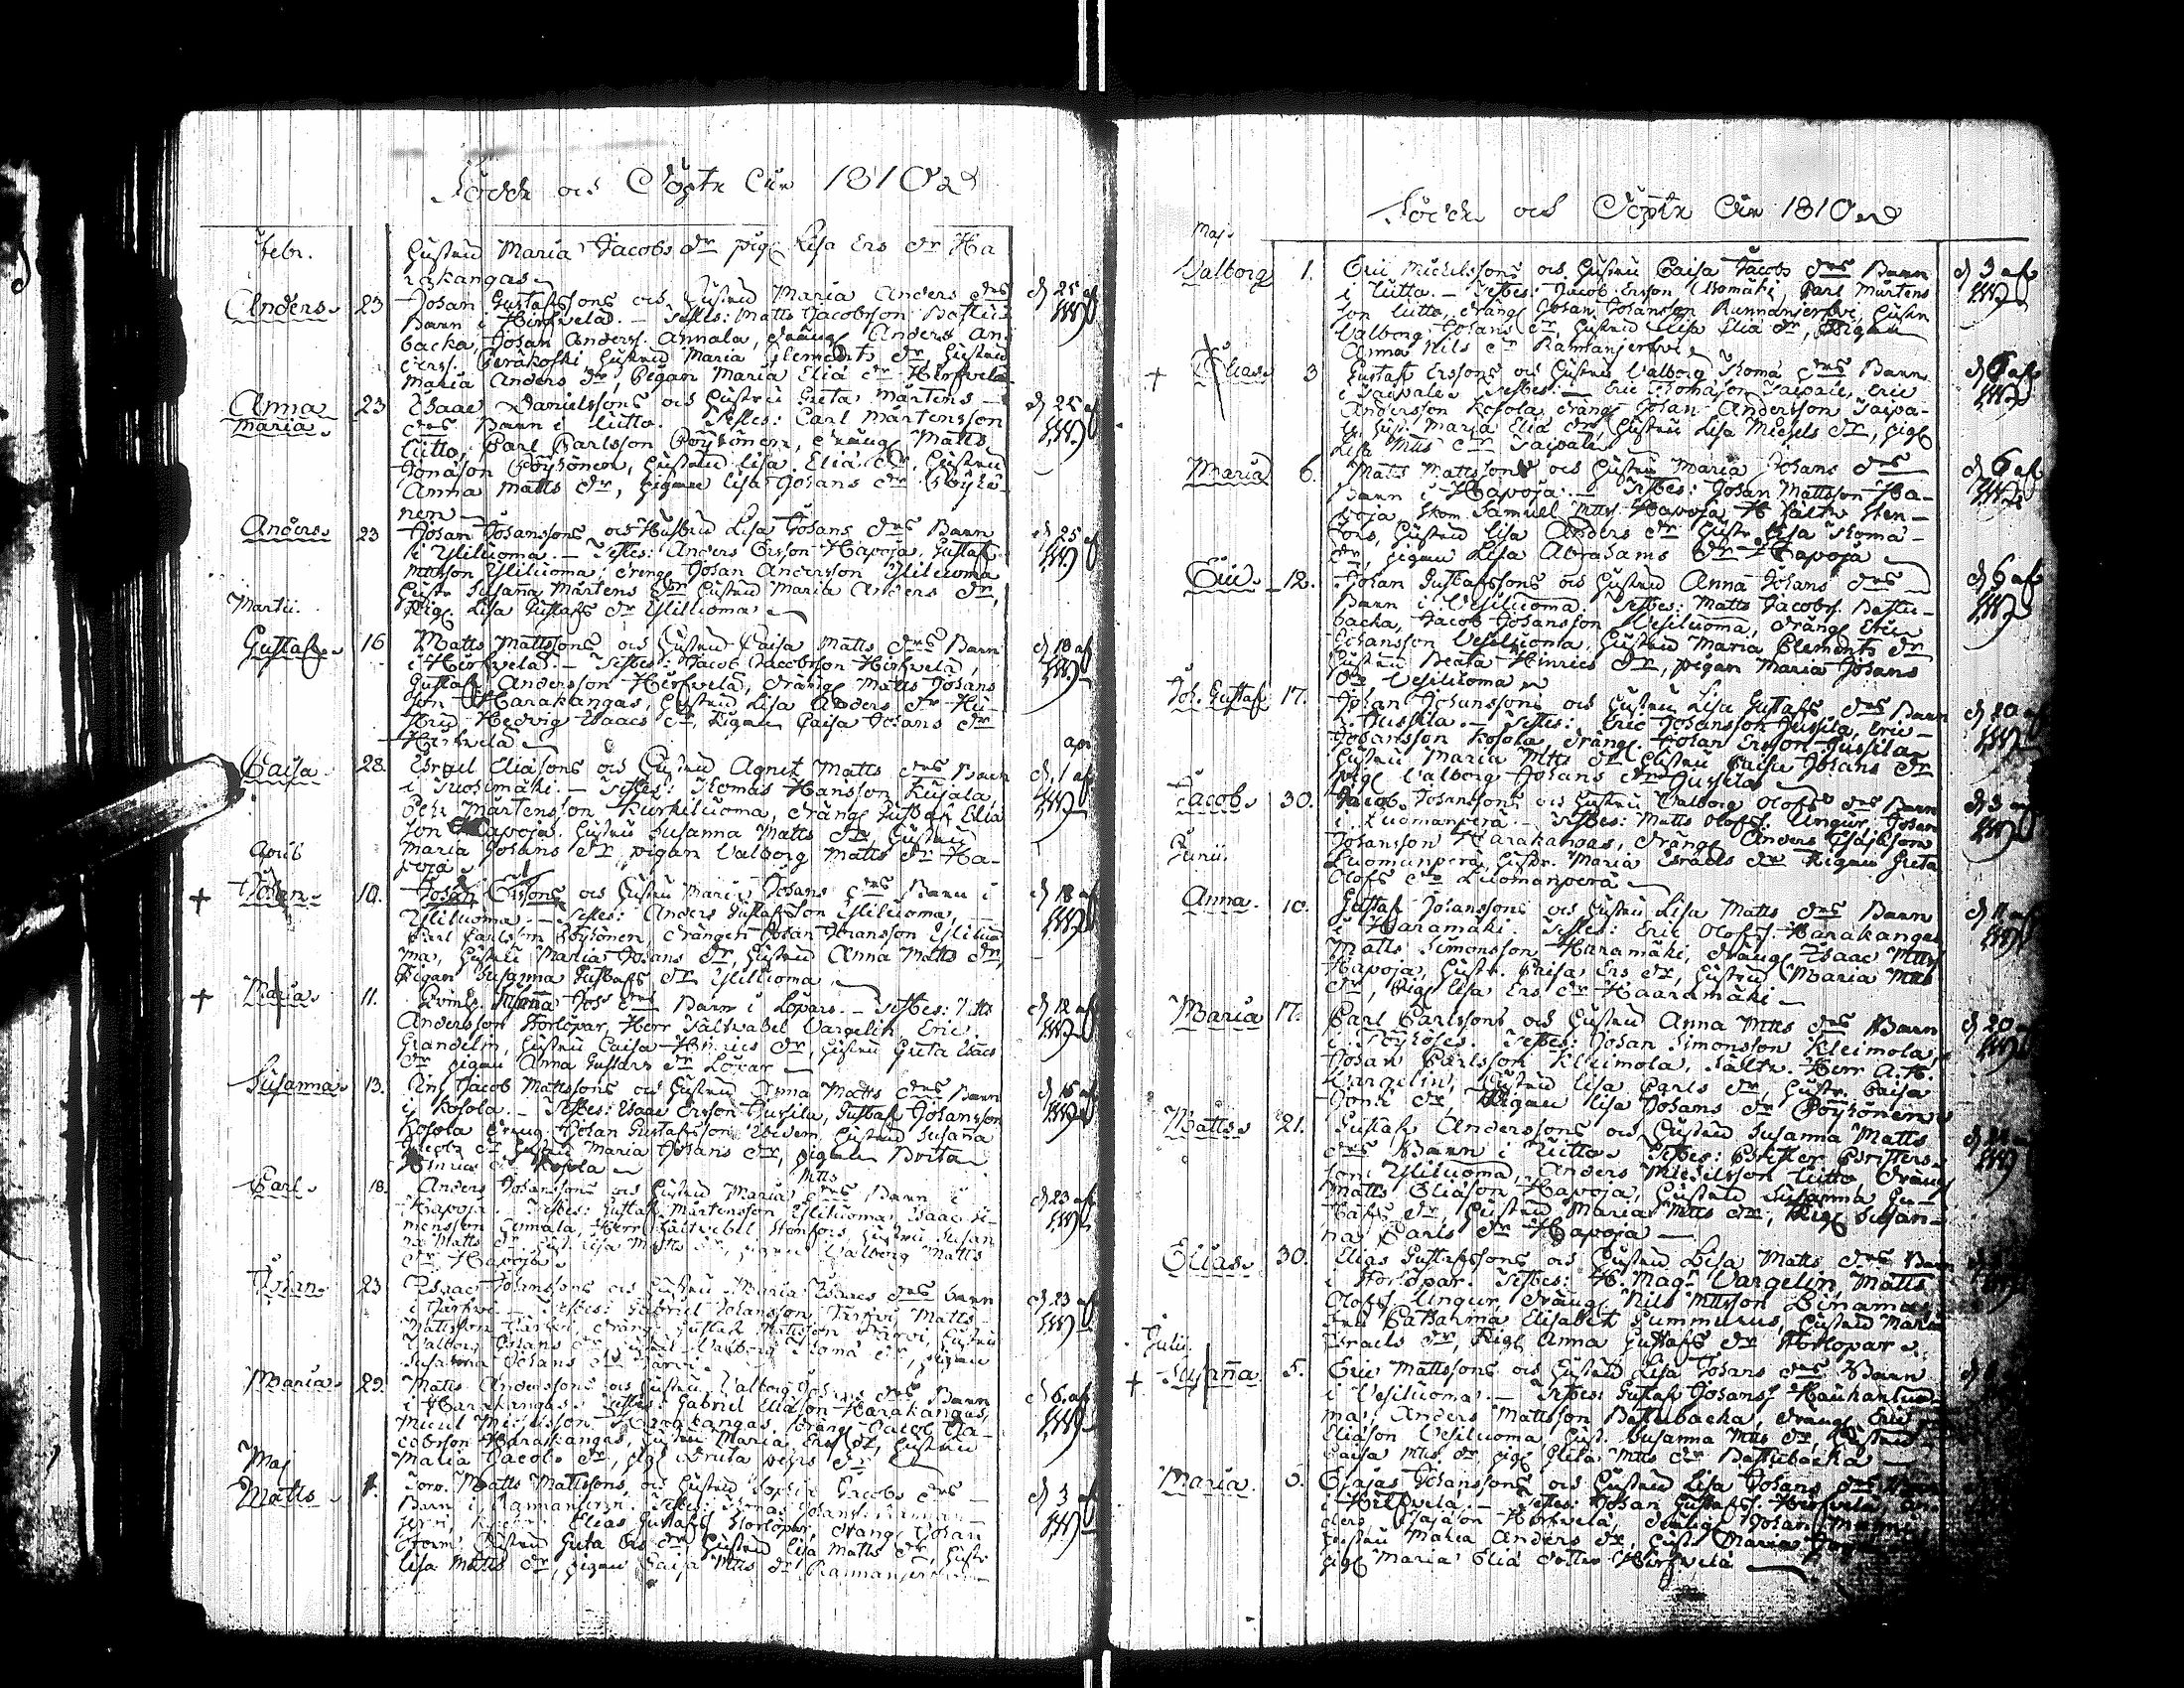 Födde och Döpte Åhr 1810
Febr.
Hustrun Maria Jacobs dr pig. Lisa Ers dr Ha
rakangas
Anders 23 Johan Gustafssons och Hustrun Maria Anders drs
Barn i Hirfvelä. – Testes: Matts Jacobsson Bastu
backa, Johan Anders. Annala, dräng Anders An
ders. Peräkoski, Hustrun Maria Clements dr, Hustrun
Maria Anders dr, Pigan Maria Eliä dr Hirfvelä
d 25 af
Anna Maria 23 Isaac Danielssons och Hustrun Greta Mårtens
drs Barn i Lutto. Testes: Carl Mårtensson
Lutto, Carl Carlsson Pöyhönen, dräng Matts
Jonäson Pöyhönen, Hustrun Lisa Eliä dr, Hustrun
Anna Matts dr, pigan Lisa Johans dr Pöyhö
nen
d 25 af
Anders 23 Johan Johanssons och Hustrun Lisa Johans drs Barn
i Yliluoma. – Testes: Anders Ersson Hapoja, Gustaf
Mttsson Yliluoma, dräng Johan Andersson Yliluoma
Hustr. Susanna Mårtens dr Hustrun Maria Anders dr,
Pig. Lisa Gustafs dr Ylilluoma
d 25 af
Martii.
Gustaf 16 Matts Mattssons och Hustrun Caisa Matts drs Barn
i Hirfvelä. – Testes: Jacob Jacobsson Hirfvelä,
Gustaf Andersson Hirfvelä, dräng Matts Johans
son Harakangas, Hustrun Lisa Anders dr Hu
strun Hedvig Isaacs dr, Pigan Caisa Johans dr
Hirfvelä
d 18 af
Caisa 28 Israel Eliäsons och Hustrun Agnet Matts drs Barn
i Tuohimäki. – Testes: Thomas Hansson Kujala,
Petr Mårtensson Kurkiluoma, dräng Gustaf Eliä
son Hapoja. Hustrun Susanna Matts dr Hustrun
Maria Johans dr pigan Valborg Matts dr Ha-
poja
apr
d 1 af
April
† Johan 10. Johan Erssons och Hustrun Maria Johans drs Barn i
Ylilluoma. – Testes: Anders Gustafsson Ylilluoma,
Carl Carlsson Pöyhönen, drängen Johan Johansson Yliluo
ma, Hustrun Maria Johans dr, Hustrun Anna Matts dr,
Pigan Susanna Gustafs dr Ylilluoma
d 18 af
† Maria 11. Susanna Joh drs Barn i Löpars. – Testes: Matts
Andersson Storlöpar, Herr Fältväbel Vargelin, Eric
Grandelin, Hustrun Caisa Hinrics dr, Hustrun Greta Isaacs
dr pigan Anna Gustafs dr Löpar
d 12 af
Susanna 13. Jacob Mattssons och Hustrun Anna Matts drs Barn
i Kosola. – Testes: Isaac Ersson Jussila, Gustaf Johansson
Kosola dräng Johan Gustafsson Hustrun Susana
Jacobs dr Hustrun Maria Johans dr, pigan Brita
Hinrics dr Kosola
d 15 af
Carl 18. Anders Johanssons och Hustrun Maria Mtts drs Barn i
Hapoja. Testes: Gustaf Mårtensson Ylilluoma, Isaac Si-
monsson Annala, Herr Fältwebel Stenfors, Hustrun Susan
na Matts dr, Hust. Lisa Matts dr, pigan Valborg Matts
dr Hapoja
d 23 af
Johan 23 Isaac Johanssons och Hustrun Maria Isaacs drs barn
i Järfvi – Testes: Gabriel Johansson Järfvi, Matts
Mattsson Järfvi, dräng Gustaf Mattsson Järvi, Hustrun
Valborg Johans dr Hustrun Valborg Thomä dr, pigan
Susanna Johans dr Järvi
d 23 af
Maria 29. Matts Anderssons och Hustrun Valborg Johans drs Barn
i Harakangas. Testes: Gabriel Eliäson Harakangas,
Michel Michelsson Harakangas, dräng Jacob Ja-
cobsson Harakangas, Hustrun Maria Ers dr, Hustrun
Maria Jacobs dr, pig. Brita dr
d 6 af
Maj
Matts 1. Torp. Matts Mattssons och Hustrun Sophia Jacobs drs
Barn i Rannanjerfvi. Testes: Thomas Johans. Rannan-
jerfvi, Elias Gustafs. Storlöpar, dräng Johan
Storm, Hustrun Greta Ers dr Hustrun Lisa Matts dr, Hustr
Lisa Matts dr, pigan Caisa Mtts dr Rannanjerfvi
d 3 af
Födde och Döpte Åhr 1810
Maj
Valborg 1. Eric Michelssons och Hustrun Caisa Jacobs drs Barn
i Lutto. – Testes: Jacob Ersson Alsomäki, Carl Mårtens
son Lutto, dräng Johan Johansson Rannanjerfvi, Hustrun
Valborg Johans dr, Hustrun Lisa Eliä dr, Pigan
Anna Nils dr Rannanjerfvi
d 3 af
† Elias 3 Gustaf Erssons och Hustrun Valborg Thomä drs Barn
i Taipale. Testes: – Eric Thomäson Taipale, Eric
Andersson Kosola, dräng Johan Andersson Taipa-
le, Hus. Maria Eliä dr, Hustrun Lisa Michels dr, pig.
Lisa Mtts dr Taipale
d 6 af
Maria 6. Matts Mattssons och Hustrun Maria Johans drs
Barn i Hapoja. – Testes: Johan Mattsson Ha-
poja, Skom. Samuel Mtts. Hapoja, H Fältw. Sten-
fors, Hustrun Lisa Anders dr Hustr. Lisa Thomä
dr, pigan Lisa Abrahams dr Hapoja
d 6 af
Eric 12. Johan Gustafssons och Hustrun Anna Johans drs
Barn i Vesiluoma. Testes: Matts Jacobs. Bastu-
backa, Jacob Johansson Vesiluoma, dräng Eric
Johansson Vesiluoma, Hustrun Maria Clements dr
Hustrun Beata Hinrics dr, pigan Maria Johans
dr Vesiluoma
d 6 af
Joh. Gustaf 17. Johan Johanssons och Hustrun Lisa Gustafs drs Barn
i Jussila. – Testes: Eric Johansson Jussila, Eric
Johansson Kosola, dräng. Johan Ersson Jussila
Hustrun Maria Mtts dr Hustrun Caisa Johans dr
pig. Valborg Johans dr Jussila
d 20 af
Jacob 30. Jacob Johanssons och Hustrun Valborg Olofs drs Barn
i Luomanperä. – Testes: Matts Olofs. Ungur, Johan
Johansson Harakangas, dräng Anders Esajäson
Luomanperä, Hustr. Maria Israels dr Pigan Greta
Olofs dr Luomanperä
d 3
Junii.
Anna 10. Gustaf Johanssons och Hustrun Lisa Matts drs Barn
i Haramäki. Testes: Eric Olofs. Harakangas
Matts Simonsson Haramäki, dräng Isaac Mtts.
Hapoja, Hustr. Caisa Ers dr, Hustrun Maria Mtts
dr, Pig. Lisa Ers dr Haaramäki
d 11 af
Maria 17. Carl Carlssons och Hustrun Anna Mtts drs Barn
i Pöyhöses. Testes: Johan Simonsson Kleimola,
Johan Carlsson Kleimola, Fältw. Herr A.H.
Vargelin, Hustrun Lisa Carls dr, Hustr. Caisa
Jonä dr, Pigan Lisa Johans dr Pöyhönen
d 20
Matts 21. Gustaf Anderssons och Hustrun Susanna Matts
drs Barn i Lutto. Testes: Christer Christers-
son Ylilluoma, Anders Michelsson Lutto, dräng
Matts Eliäson Hapoja, Hustrun Susanna Gu-
stafs dr, Hustrun Maria Mtts dr, Pig. Susan-
na Carls dr Hapoja
Elias 30. Elias Gustafssons och Hustrun Lisa Matts drs Barn
i Storlöpar. Testes: H. Mag. Vargelin, Matts
Olofs. Ungur, dräng. Nils Mttsson
Fru Catharina Elisabet Gummerus, Hustrun Maria
Israels dr, Pig. Anna Gustafs dr Storlöpar
Julii
† Susanna 5. Eric Mattssons och Hustrun Lisa Johans drs Barn
i Vesiluoma. – Testes: Gustaf Johans. Haukanluo-
ma, Anders Mattsson Bastubacka, dräng Eric
Eliäson Vesiluoma, Hust. Susanna Mtts dr, Hustrun
Caisa Mtts dr, pig. Greta Mtts dr Bastubacka
Maria Esajas Johanssons och Hustrun Lisa Johans drs Barn
i Hirfvelä. – Testes: Johan Gustafs. Hirfvelä An-
ders Esajäson Hirfvelä, dräng Johan
Hustrun Maria Anders dr, Hust. Maria
pig. Maria Eliä dotter Hirfvelä